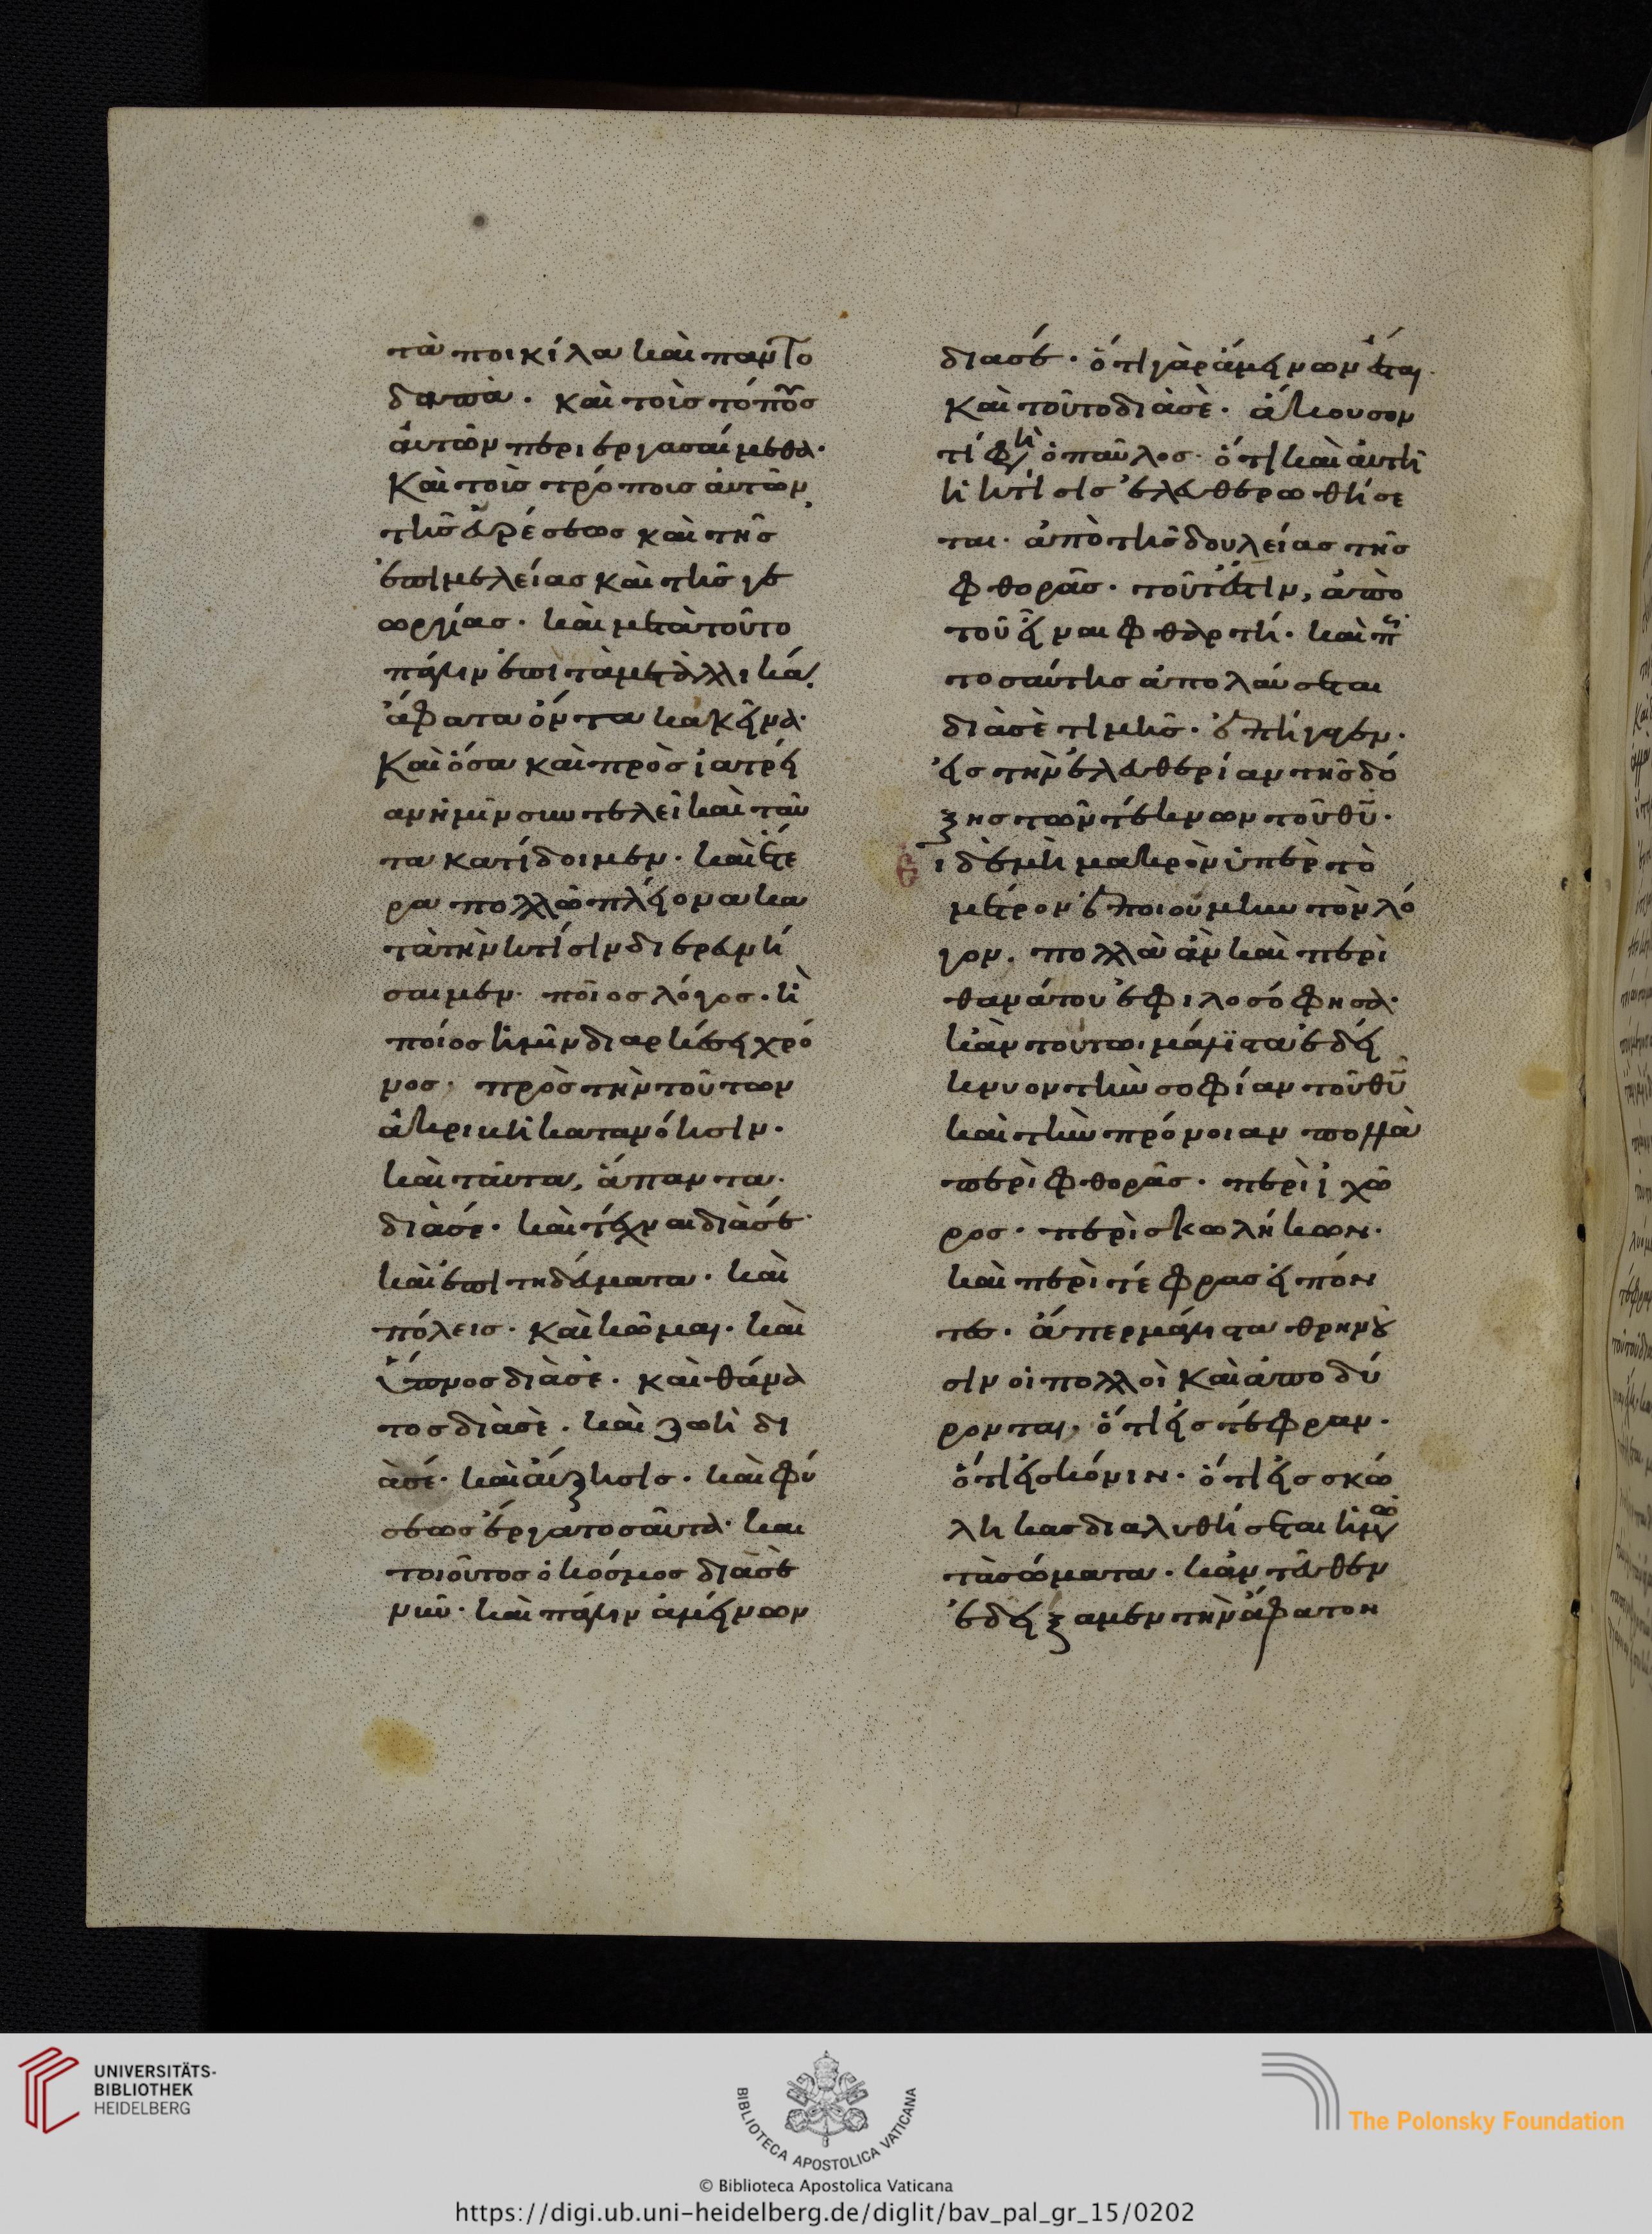 τὰ ποικίλα καὶ παντο
δαπὰ· καὶ τοῖς τόποις
αὐτῶν περιεργασαίμεθα·
Καὶ τοῖς τρόποις αὐτῶν,
τῆς εὑρέσεως καὶ τῆς
ἐπιμελείας καὶ τῆς γε
ωργίας· καὶ μετὰ τοῦτο
πάλιν ἐπὶ τὰ μεταλλικά,
ἄφατα ὄντα κακεῖνα·
Καὶ ὅσα καὶ πρὸς ἰατρεί
αν ἡμῖν συντελεῖ καὶ ταῦ
τα κατίδοιμεν· καὶ ἕτε
ρα πολλῶ πλείονα κα
τὰ τὴν κτίσιν διερευνή
σαιμεν· ποῖος λόγος· ἢ
ποίος ἡμῖν διαρκέσει χρό
νος· πρὸς τὴν τούτων
ἀκριβῆ κατανόησιν·
καὶ ταῦτα, ἅπαντα·
διὰ σέ· καὶ τέχναι διὰ σέ·
καὶ ἐπιτηδεύματα· καὶ
πόλεις· καὶ κῶμαι· καὶ
ὕπνος διὰ σὲ· καὶ θάνα
τος διὰ σὲ· καὶ ζωὴ δι
ὰ σέ· καὶ αὔξησις· καὶ φύ
σεως ἔργα τοσαῦτα· καὶ
τοιοῦτος ὁ κόσμος διὰ σὲ
νῦν· καὶ πάλιν ἀμείνων
διὰ σέ· ὅτι γὰρ ἀμείνων ἔσται·
Καὶ τοῦτο διὰ σὲ· ἄκουσον
τί φησὶν ὁ παῦλος· ὅτι καὶ αὐτὴ
ἡ κτίσις ἐλευθερωθήσε
ται· ἀπὸ τῆς δουλείας τῆς
φθορᾶς· τοῦτέστιν, ἀπὸ
τοῦ εἶναι φθαρτή· καὶ τῆς
τοσαύτης ἀπολαύσεται
διὰ σὲ τιμῆς· ἐπήγαγεν·
εἰς τὴν ἐλευθερίαν τῆς δό
ξης τῶν τέκνων τοῦ θῦ·
ι δὲ μὴ μακρὸν ὑπὲρ τὸ
μέτρον ἐποιούμην τὸν λό
γον· πολλὰ ἂν καὶ περὶ
θανάτου ἐφιλοσόφησα·
κἀν τούτω μάλιστα ἐδεί
κνυον τὴν σοφίαν τοῦ θῦ
καὶ τὴν πρόνοιαν πολλὰ
περὶ φθορᾶς· περὶ ἰχῶ
ρος· περὶ σκωλήκων·
καὶ περὶ τέφρας εἰπόν
τες· ἅπερ μάλιστα θρηνοῦ
σιν οἱ πολλοὶ καὶ ἀποδύ
ρονται· ὅτι εἰς τέφραν·
ὅτι εἰς κόνιν· ὅτι εἰς σκώ
ληκας διαλυθήσεται ἡμῶν
τὰ σώματα· κἀντεῦθεν
ἐδείξαμεν τὴν ἄφατον
UNIVERSITÄTS-
BIBLIOTHEK
HEIDELBERG
BIBLIOTECA APOSTOLICA VATICANA
The Polonsky Foundation
© Biblioteca Apostolica Vaticana
https://digi.ub.uni-heidelberg.de/diglit/bav_pal_gr_15/0202